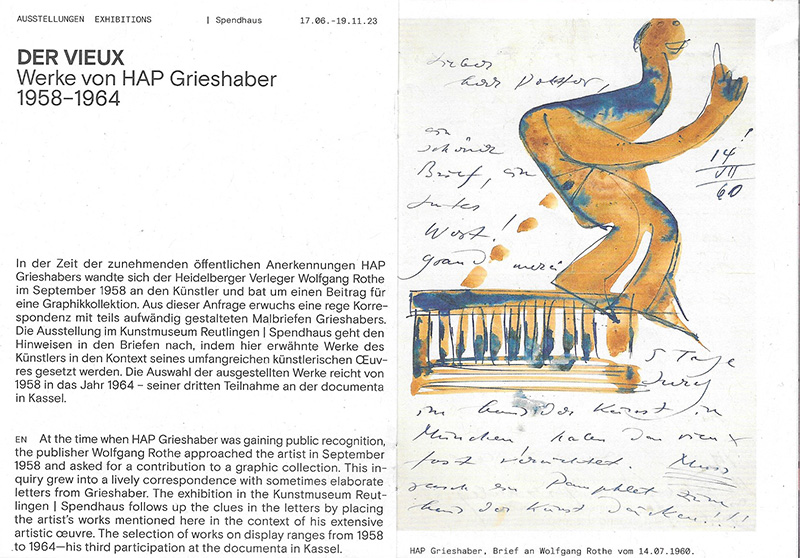 AUSSTELLUNGEN EXHIBITIONS | Spendhaus 17.06.-19.11.23
DER VIEUX
Werke von HAP Grieshaber
1958–1964
In der Zeit der zunehmenden öffentlichen Anerkennungen HAP
Grieshabers wandte sich der Heidelberger Verleger Wolfgang Rothe
im September 1958 an den Künstler und bat um einen Beitrag für
eine Graphikkollektion. Aus dieser Anfrage erwuchs eine rege Korre-
spondenz mit teils aufwändig gestalteten Malbriefen Grieshabers.
Die Ausstellung im Kunstmuseum Reutlingen | Spendhaus geht den
Hinweisen in den Briefen nach, indem hier erwähnte Werke des
Künstlers in den Kontext seines umfangreichen künstlerischen Œuv-
res gesetzt werden. Die Auswahl der ausgestellten Werke reicht von
1958 in das Jahr 1964 – seiner dritten Teilnahme an der documenta
in Kassel.
EN At the time when HAP Grieshaber was gaining public recognition,
the publisher Wolfgang Rothe approached the artist in September
1958 and asked for a contribution to a graphic collection. This in-
quiry grew into a lively correspondence with sometimes elaborate
letters from Grieshaber. The exhibition in the Kunstmuseum Reut-
lingen | Spendhaus follows up the clues in the letters by placing
the artist's works mentioned here in the context of his extensive
artistic œuvre. The selection of works on display ranges from 1958
to 1964—his third participation at the documenta in Kassel.
Lieber
Herr Doktor,
ein
schöner
Brief, ein
gutes
Wort!
Grand merci
!
14
VII
60
5 Tage
Jury
im Haus der Kunst in
München haben den vieux
fast vernichtet. Muss
rasch ein Pamphlet zum
Haus der Kunst drucken!!!
HAP Grieshaber, Brief an Wolfgang Rothe vom 14.07.1960.